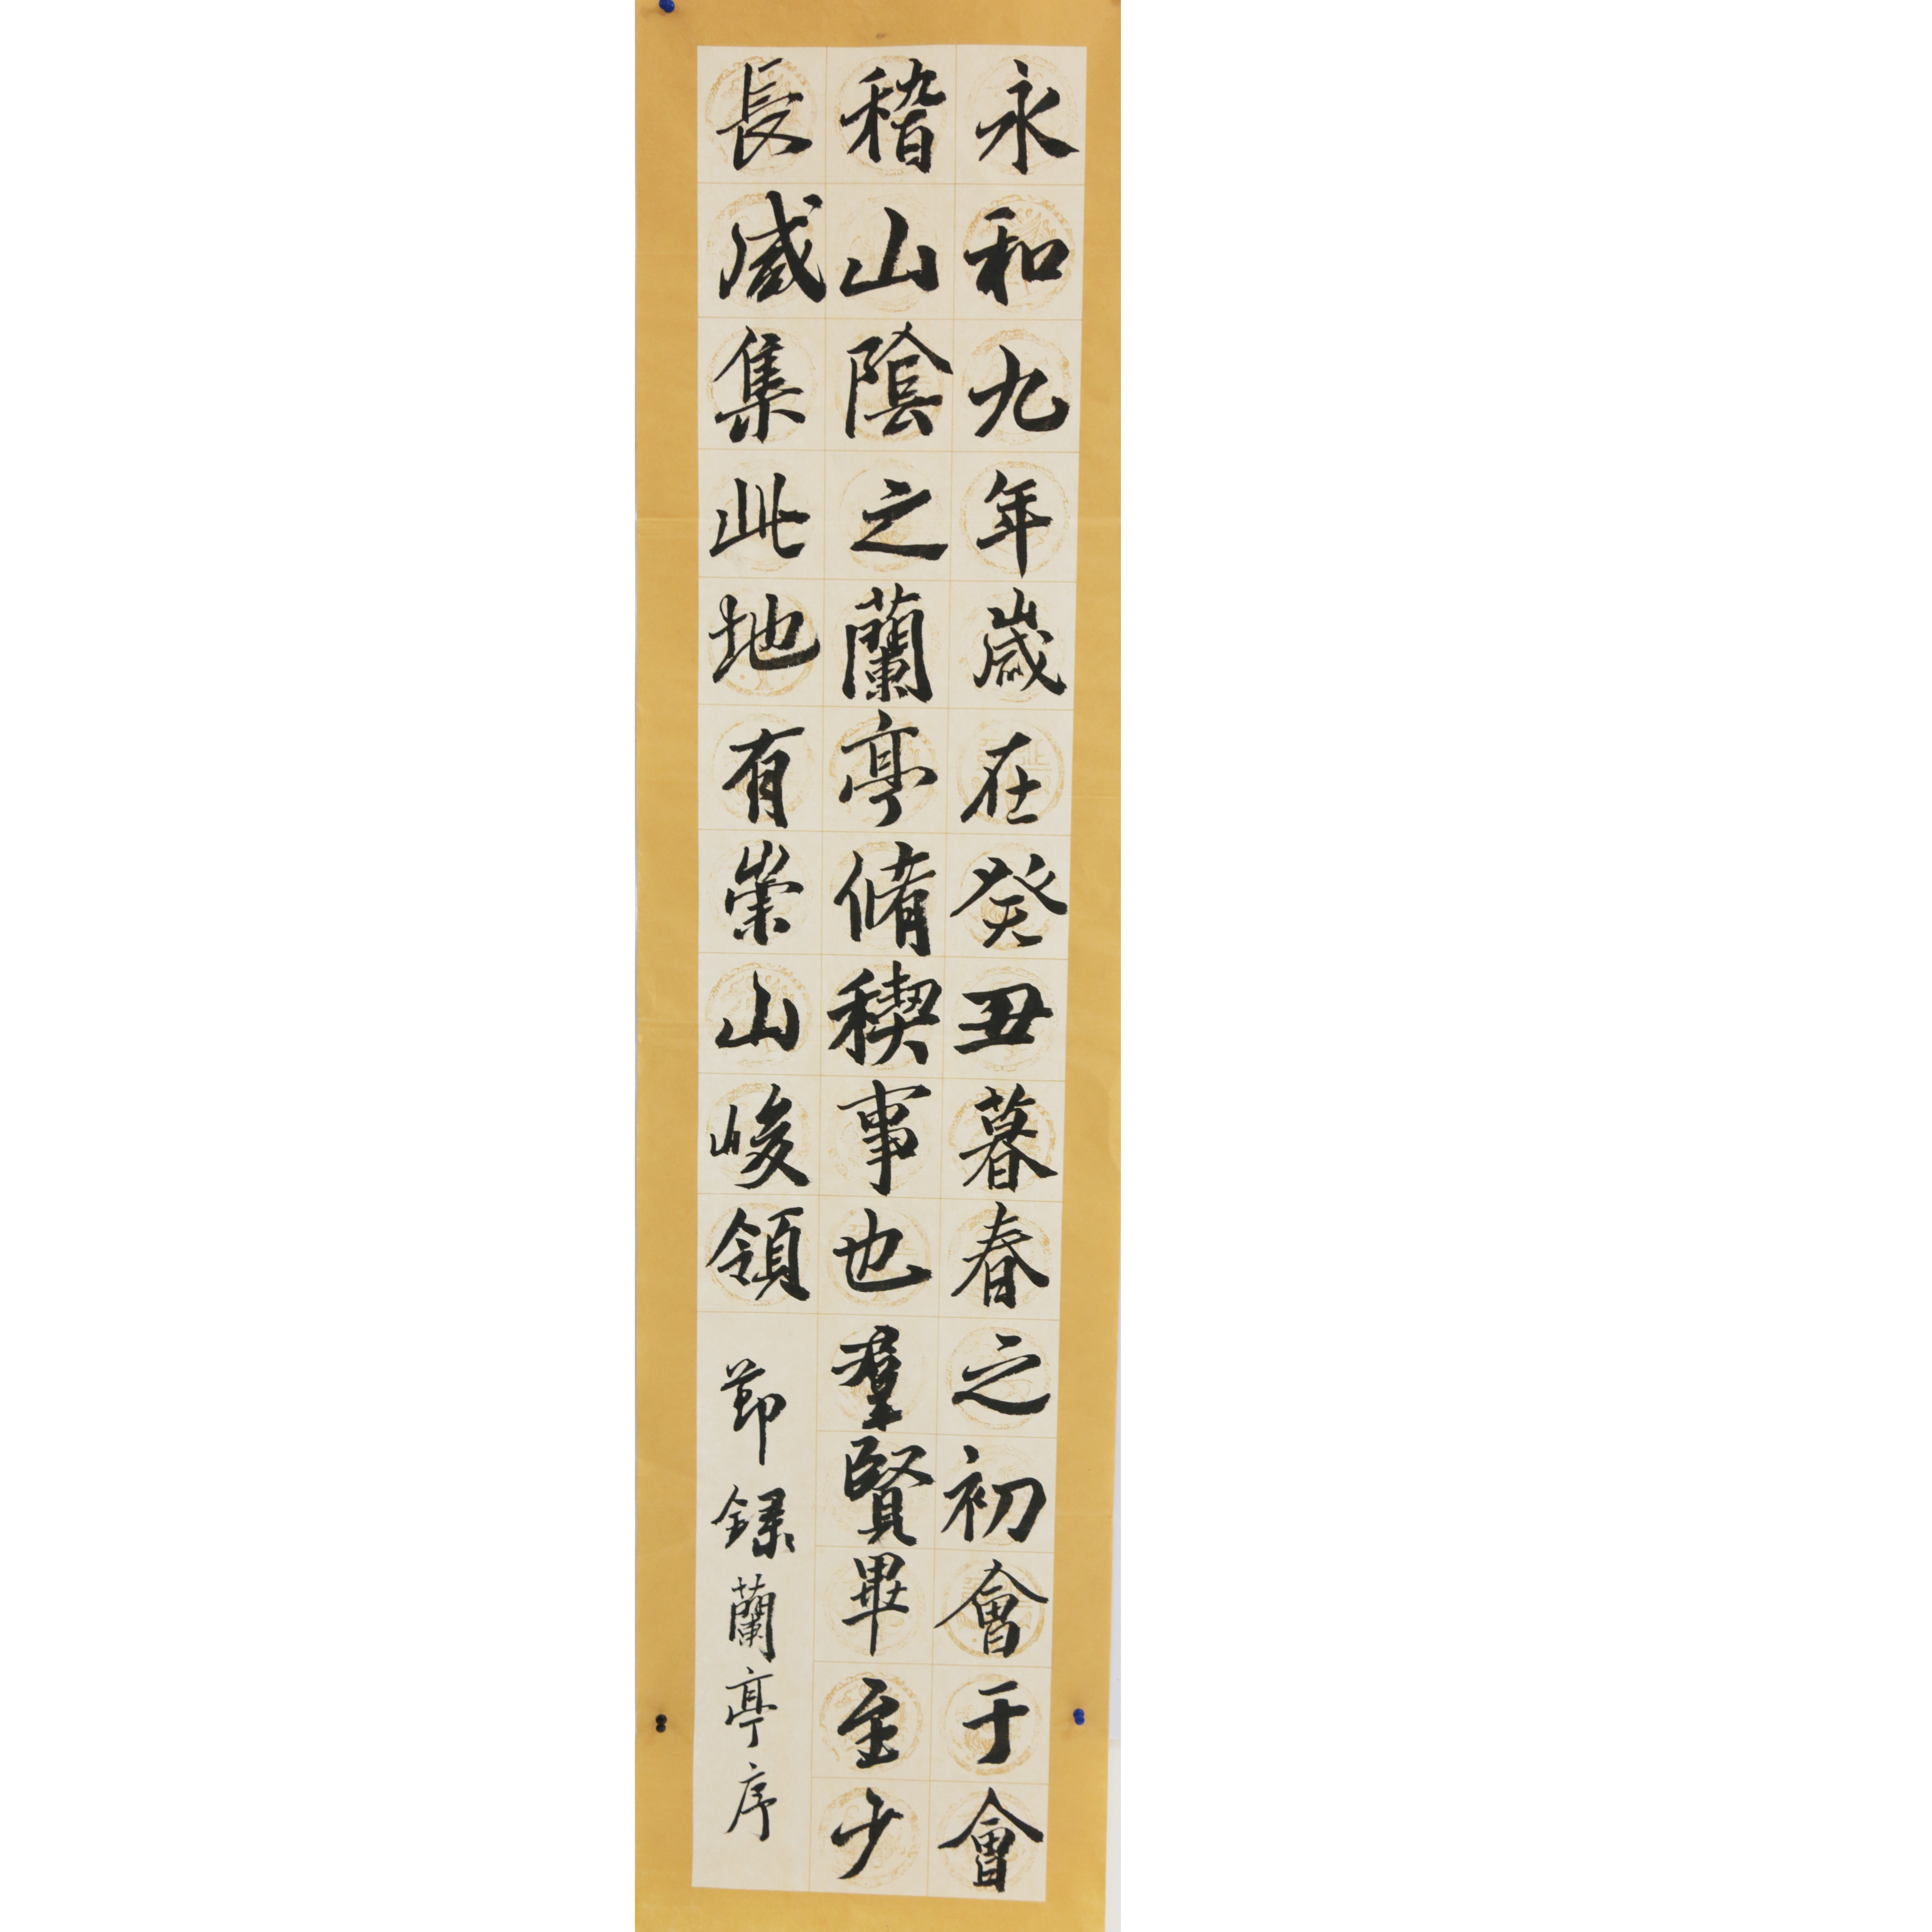 永和九年歲在癸丑暮春之初會于會
稽山陰之蘭亭脩稧事也羣賢畢至少
長咸集此地有崇山峻領
節録蘭亭序